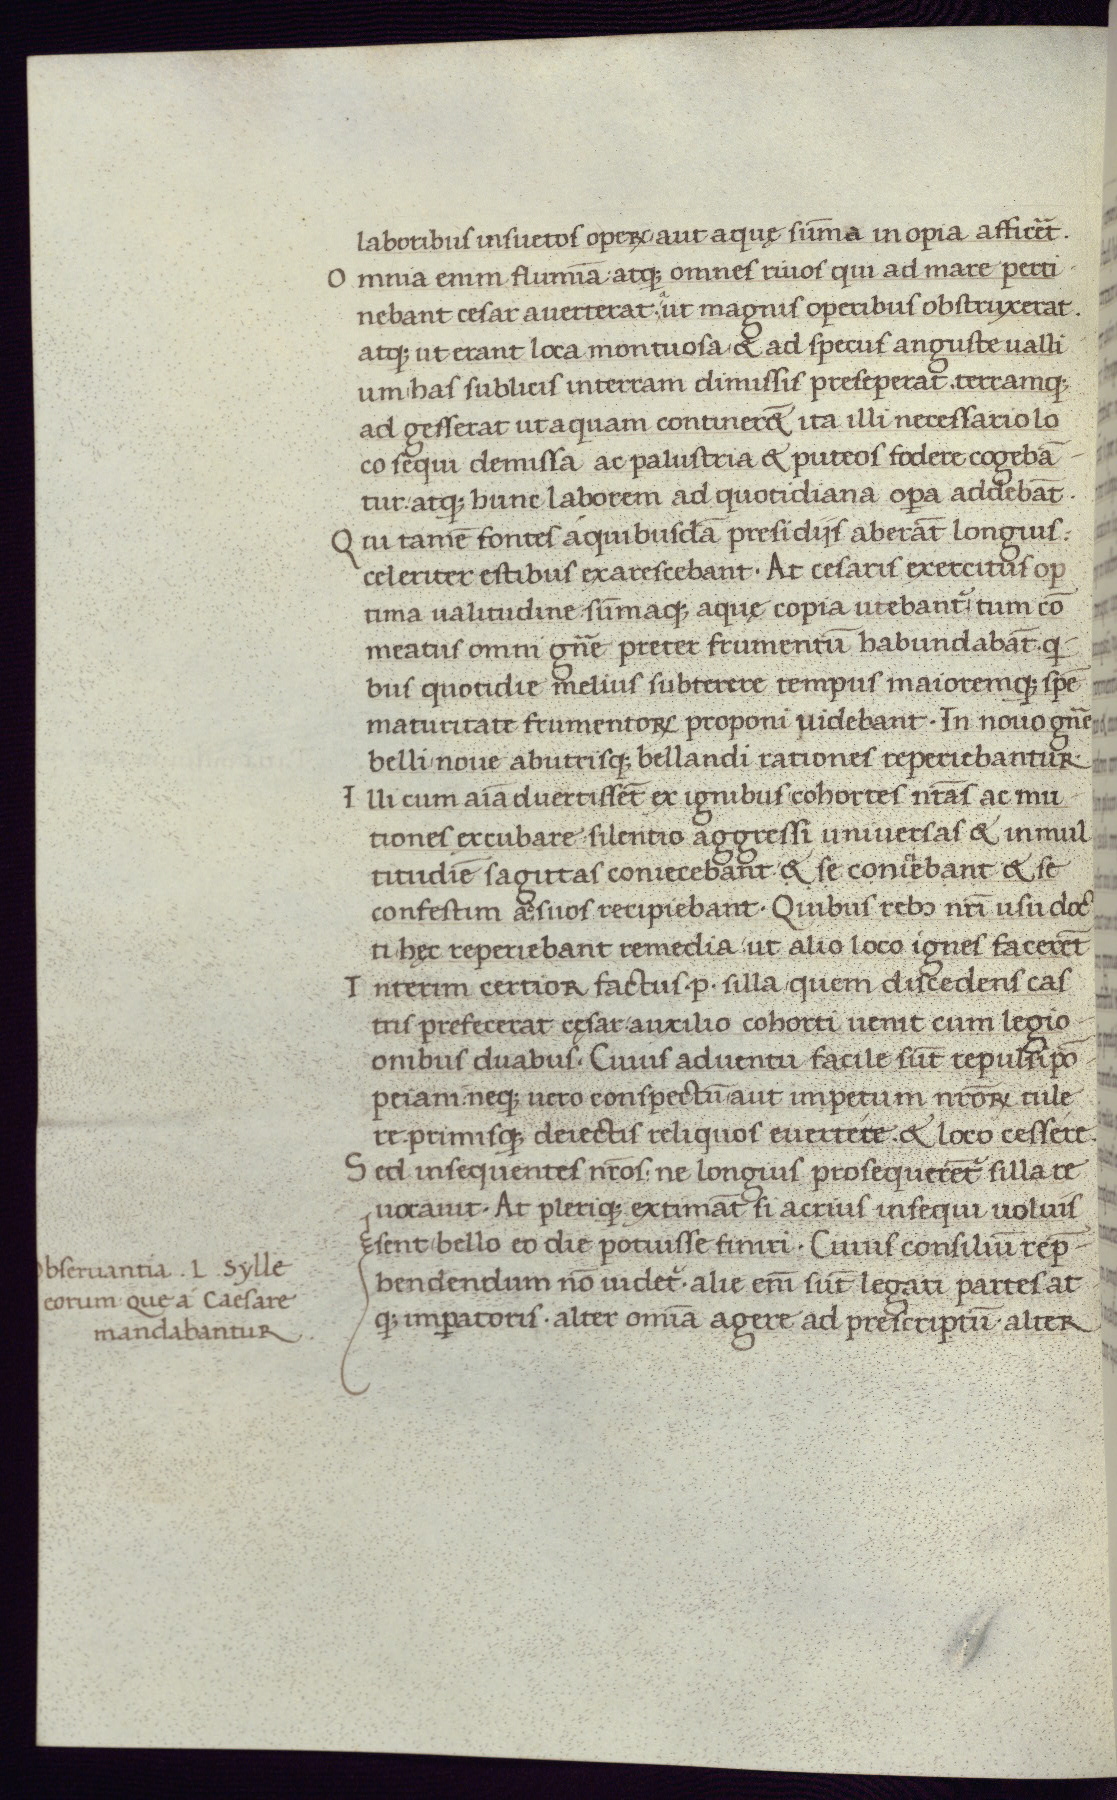 laboribus insuetos operꝝ aut aquę sūma inopia afficer̄t.
Omnia enim flumīa atq; omnes riuos qui ad mare perti
nebant cesar auerterat. aut magnis operibus obstruxerat.
atq; ut erant loca montuosa & ad specus anguste ualli
um has sublicis interram dimissis preseperat. terramq;
ad gesserat ut aquam contineret̄ ita illi necessario lo
co sequi demissa ac palustria & puteos fodere cogebā
tur. atq; hunc laborem ad quotidiana oꝑa addebāt.
Qui tamē fontes aquibusdā presidijs aberāt longius.
celeriter estibus exarescebant. At cesaris exercitus op
tima ualitudine sūmaq; aquę copia utebant᷑ tum cō
meatus omni gn̄e preter frumentū habundabāt. q
bus quotidie melius subterere tempus maioremq; spē
maturitate frumentoꝝ proponi uidebant. In nouo gn̄e
belli noue abutrisq; bellandi rationes reperiebantur
Illi cum aīa duertissēt ex ignibus cohortes nr̄as ac mu
tiones excubare silentio aggressi uniuersas & inmul
titudiē sagittas coniecebant & se coniebant & se
confestim ad suos recipiebant. Quibus rebꝫ nr̄i usu doc
ti hęc reperiebant remedia ut alio loco ignes facerēt
Interim certior factus. p. silla quem discedens cas
tris prefecerat cęsar. auxilio cohorti uenit cum legio
onibus duabus. Cuius aduentu facile sūt repulsi pō
peiam. neq; uero conspectū aut impetum nr̄oꝝ tule
re. primisq; deiectis reliquos euertere. & loco cessere.
Sed insequentes nr̄os. ne longius prosequerēt᷑ silla re
uocauit. At pleriq; extimāt si acrius insequi uoluis
sent bello eo die potuisse finiri. Cuius consiliū rep̄
hendendum nō uidet᷑. alie em̄ sūt legati partes at
q; imꝑatoris. alter omīa agere ad prescriptū. alter
obseruantia. L Sylle
eorum que a Caesare
mandabantur